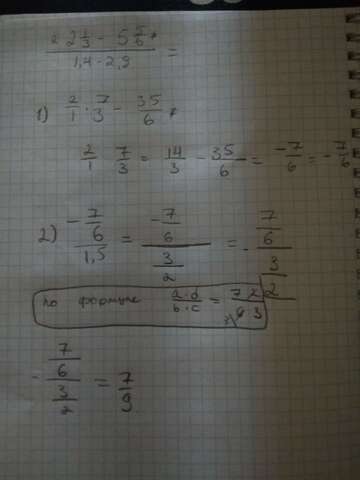 2 2 1/3 - 5 5/6
1,4 - 2,9 =
1) 2/1 · 7/3 - 35/6
2/1 7/3 = 14/3 - 35/6 = -7/6 = - 7/6
2) - 7/6 / 1,5 = -7/6 / 3/2 = - 7/6 / 3/2
по формуле a·d / b·c = 7 2 / 6 3
- 7/6 / 3/2 = 7/9